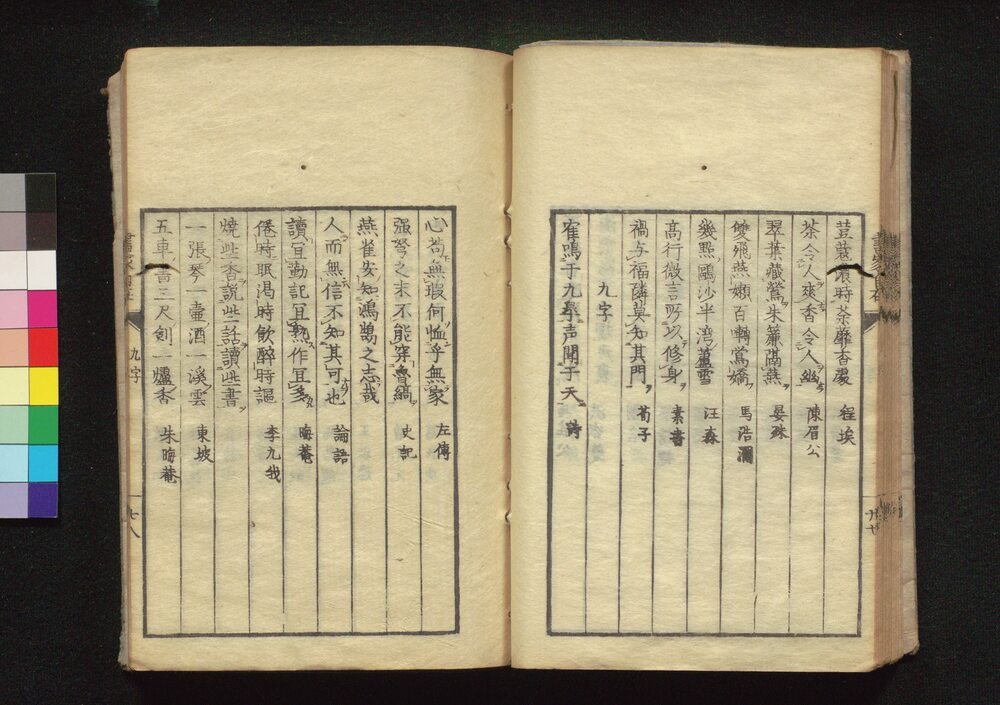 荳蔲浪時荼蘼香處 程埃
茶令人爽香令人幽 陳眉公
翠葉藏鶯朱簾隔燕 晏殊
雙飛燕嬾百囀鶯嬌 馬浩瀾
幾點鷗沙半湾蘆雪 汪森
高行微言所以修身 素書
禍与福隣莫知其門 荀子
九字
隺鳴于九皋声聞于天 詩
心苟無瑕何恤乎無家 左傳
强弩之末不能穿魯縞 史記
燕雀安知鴻鵠之志哉
人而無信不知其可也 論語
讀冝勤記冝熟作冝多 晦菴
倦時眠渇時飲醉時謳 李九我
燒些香説些話讀些書
一張琴一壷酒一溪雲 東坡
五車書三尺劍一爐香 朱晦菴
九字